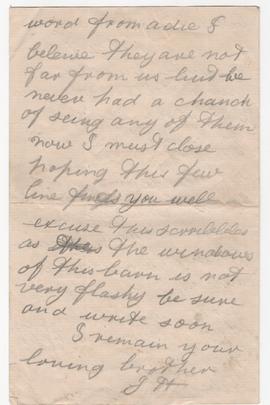 word from adie I
beleive they are not
far from us but we
never had a chanch
of seing any of them
now I must close
hoping this few
line finds you well
excuse this scribbles
as the windows
of this barn is not
very flashy be sure
and write soon
I remain your
loving brother
J H